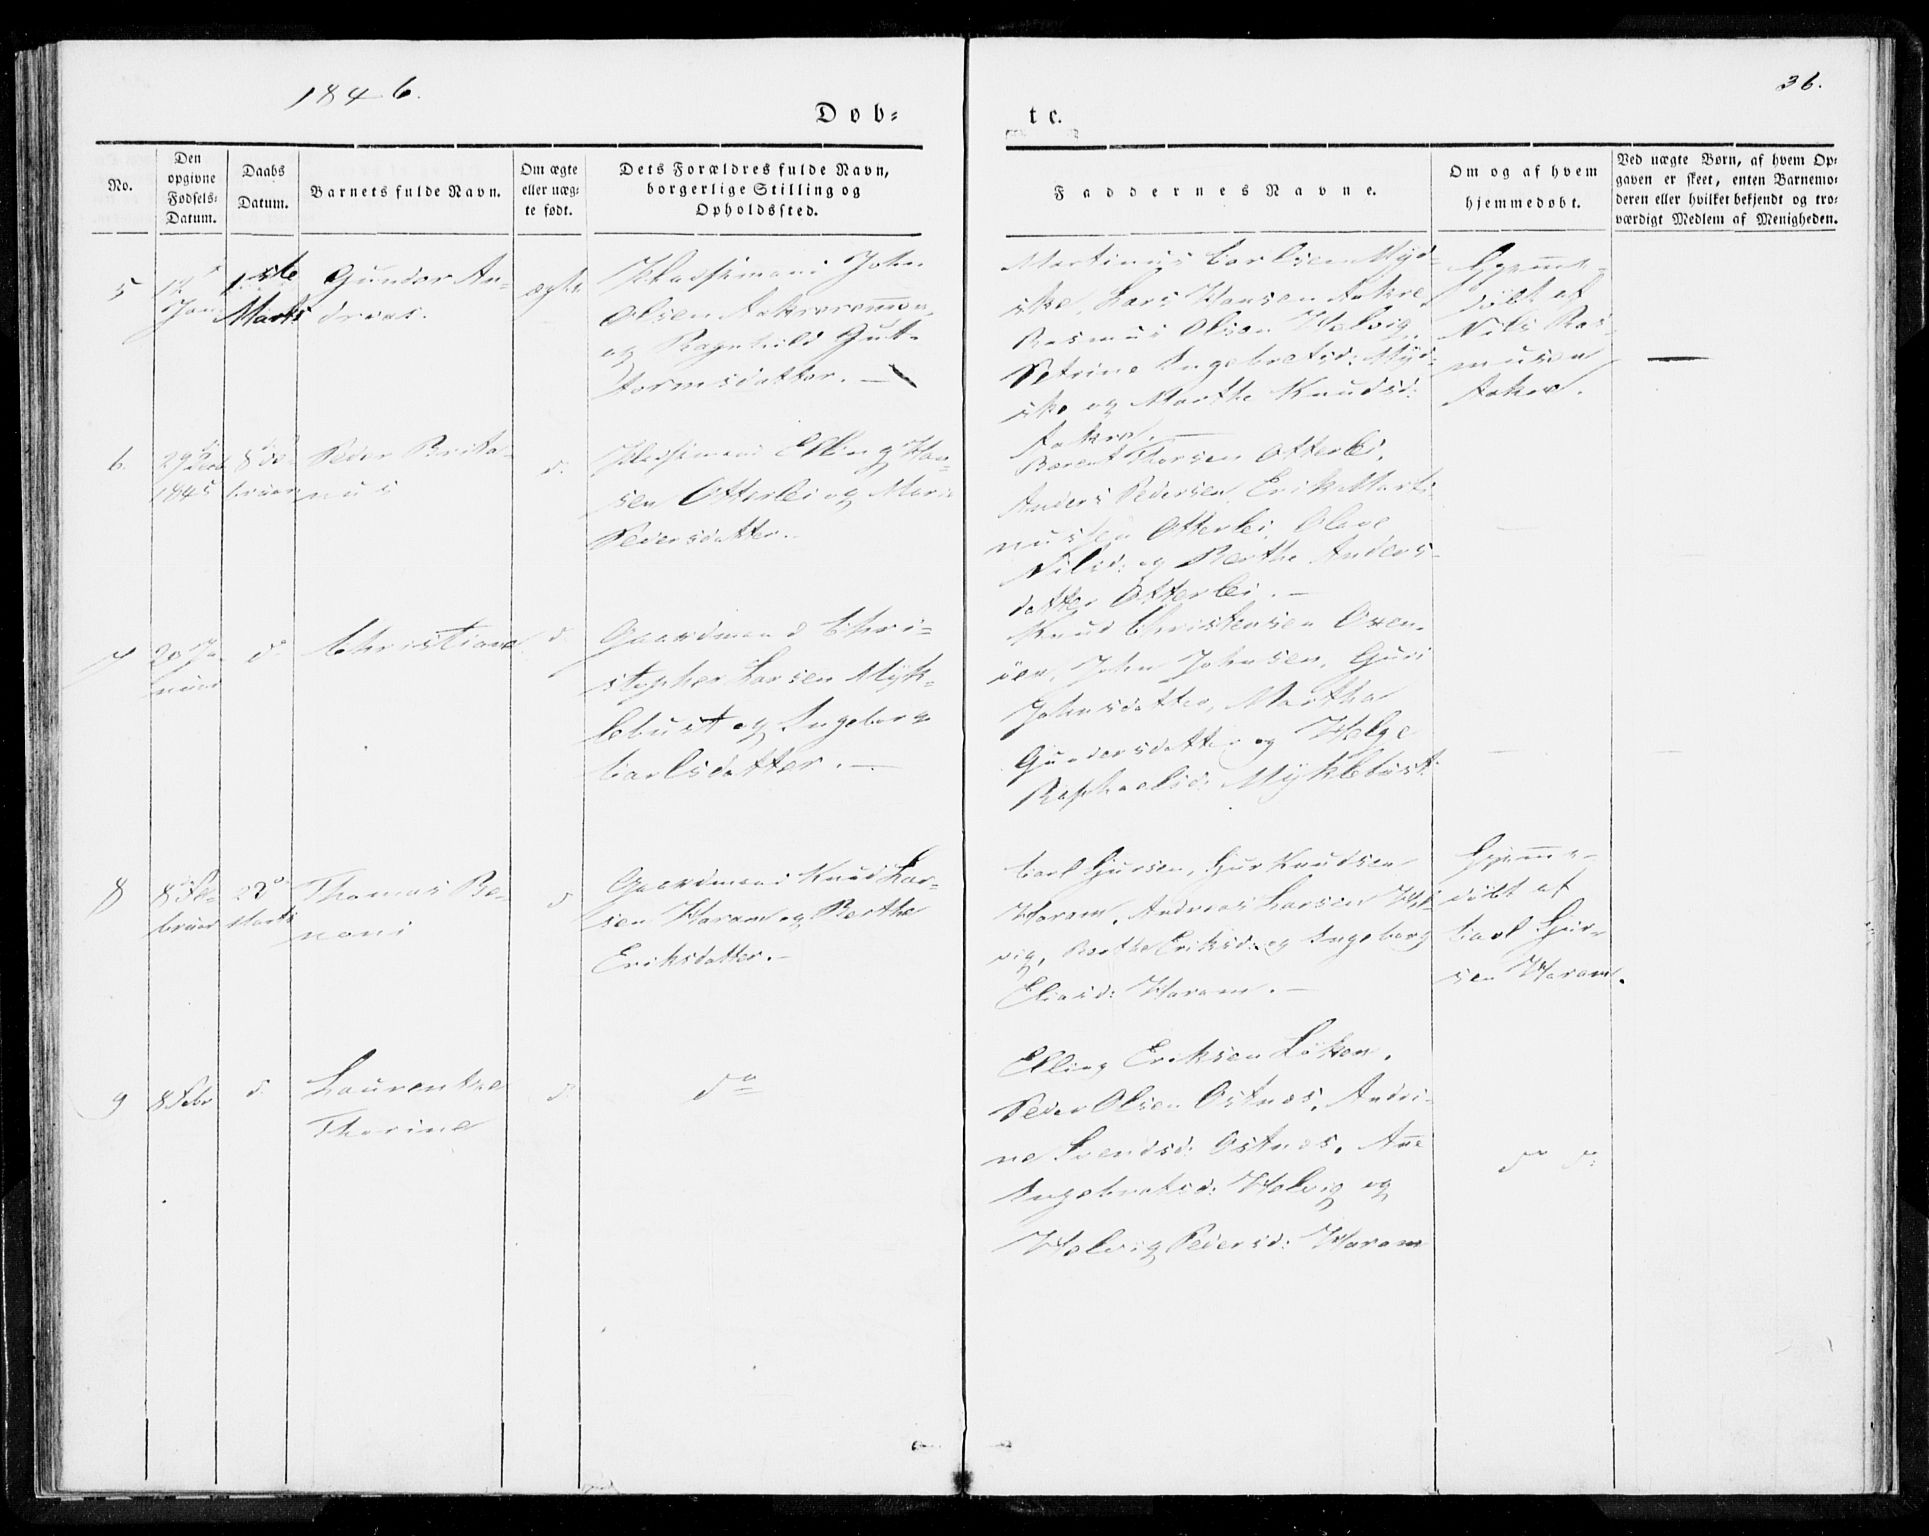 1846.
36.
Døb=
te.
No.
Den
opgivne
Fødsels=
Datum.
Daabs
Datum.
Barnets fulde Navn.
Om ægte
eller uæg=
te født.
Dets Forældres fulde Navn,
borgerlige Stilling og
Opholdssted.
Faddernes Navne.
Om og af hvem
hjemmedøbt.
Ved uægte Børn, af hvem Op=
gaven er skeet, enten Barnemo=
deren eller hvilket bekjendt og tro=
værdigt Medlem af Menigheden.
5
Jan
1ste
Marts
Gunder An-
dreas.
ægte
John
Olsen
og Ragnhild Gut-
tormsdatter. —
Martinus Carlsen Myd-
ske, Lars Hansen Aakre
Rasmus Olsen Helvig,
Petrine Ingebretsd: Myd-
ske og Marthe Knudsd:
Aakre. —
Hjemme-
døbt af
Nils Ras-
musen
Aakre.
—
6.
29
1845
8
bruar
Peder Brita-
nus
d.
Elling Han-
sen Otterlei og Mari
Pedersdatter.
Berent Thorsen Otterlei,
Anders Pedersen, Erik Marti-
nussen Otterlei, Olave
Nilsd: og Berthe Anders-
datter Otterlei. —
—
—
7
20 Ja-
nuar
d.
Christiane
d.
Gaardmand Chri-
stopher Larsen Myk-
lebust og Ingeborg
Carlsdatter. —
Knud Christensen Oxen-
öen, John Johnsen, Guri
Johnsdatter, Martha
Gundersdatter og Helge
Raphaelsd: Myklebust
—
—
8
8 Fe-
bruar
22
Marts
Thomas Be-
noni
d
Gaardmand Knud Lar-
sen Haram og Berthe
Eriksdatter. —
Carl Sjursen, Sjur Knudsen
Haram, Andreas Larsen Hel-
vig, Berthe Eriksd: og Ingeborg
Eliasd: Haram. —
Hjemme-
døbt af
Carl Sjur-
sen Haram.
9
8 Febr
d.
Laurentse
Thorine
d.
do
Elling Eriksen Löken,
Peder Olsen Ostnes, Andri-
ne Svendsd: Ostnes, Ane
Ingebretsd: Helvig og
Helvig Pedersd: Haram
do do